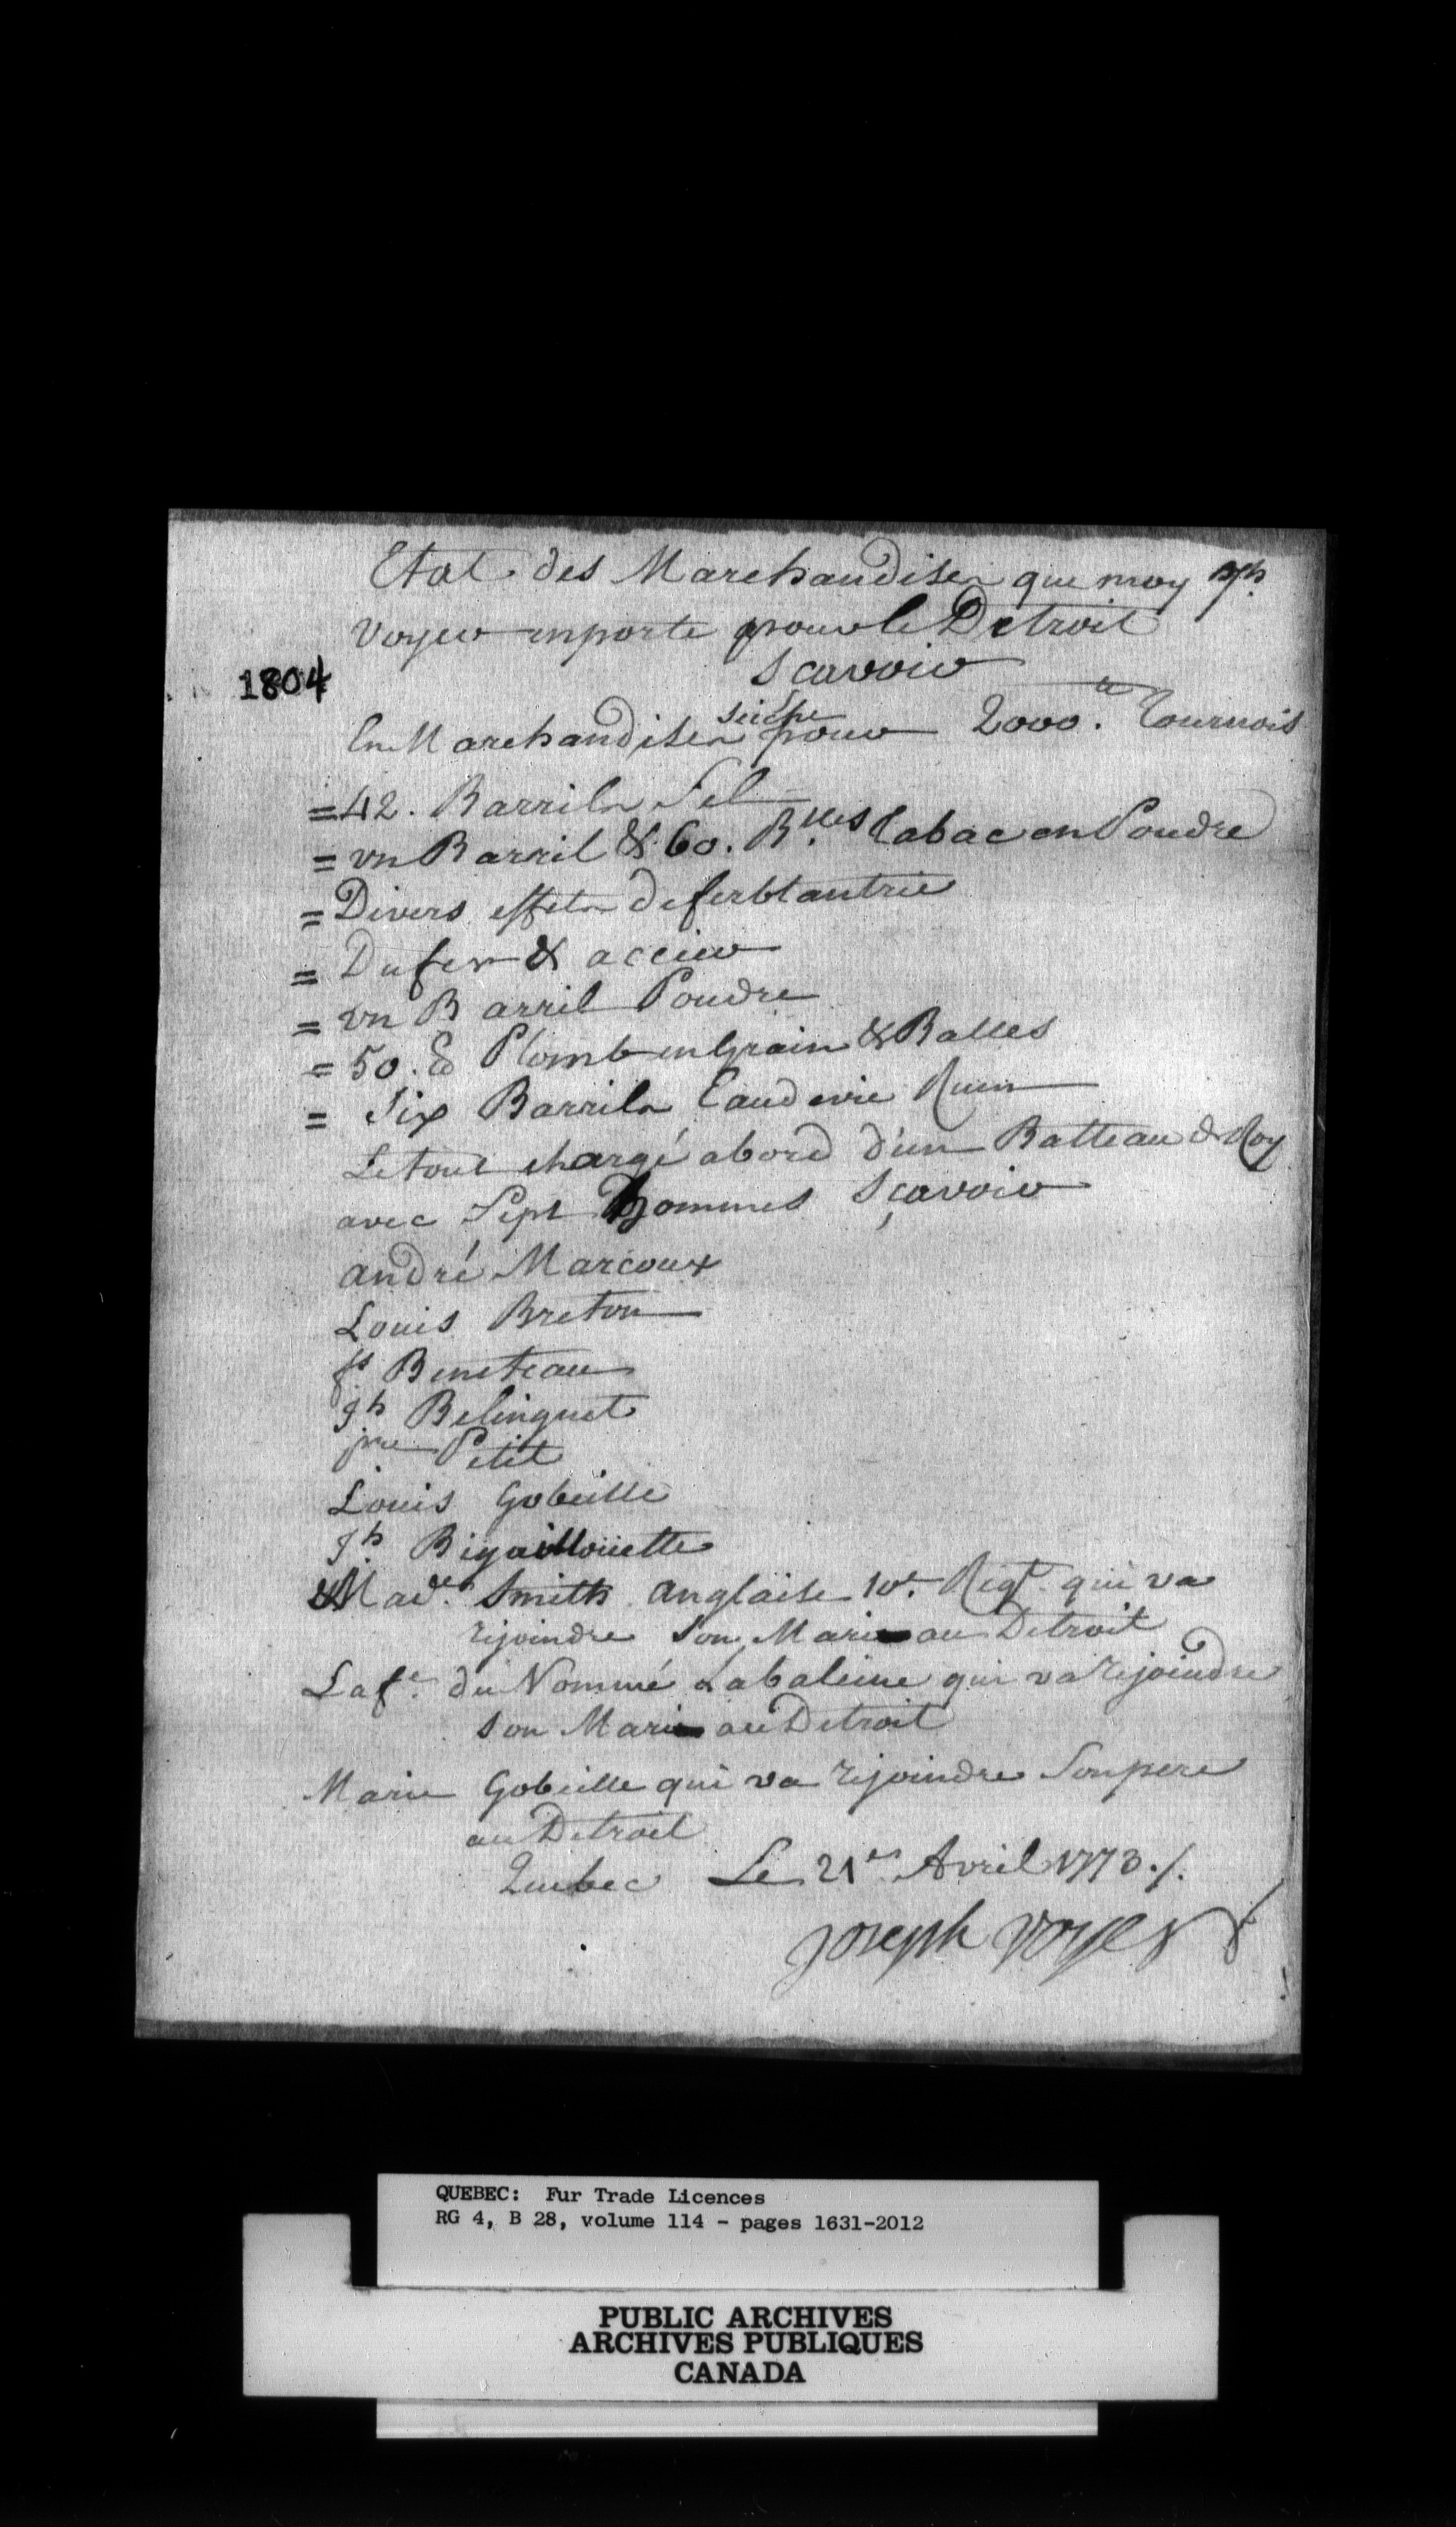 Etat des Marchandises que moy Jph
Voyer emporte pour le Detroit
Scavoir
1804
En Marchandises seiche pour 2000.lt Tournois
= 42. Barrils Sel
= un Barril & 60. Blles Tabac en Poudre
= Divers effets de ferblantrie
= Du fer & accier
= un Barril Poudre
= 50. lb Plomb en Grain & Balles
= Six Barrils Eau devie Rum
Le tout chargé abord d'un Batteau d Roy
avec Sept hommes Sçavoir
andré Marcoux
Louis Breton
fs Beneteau
Jh Belinguet
pre Petit
Louis Gobeille
Jh Bigaouillouette
& Made Smith anglaise 10e. Regt. qui va
rejoindre son Mari au Detroit
La fe. du Nommé Labaleine qui va rejoindre
son Mari au Detroit
Marie Gobeille qui va rejoindre Son pere
au Detroit
Quebec Le 21er Avril 1773./.
Joseph Voyer
QUEBEC: Fur Trade Licences
RG 4, B 28, volume 114 - pages 1631-2012
PUBLIC ARCHIVES
ARCHIVES PUBLIQUES
CANADA